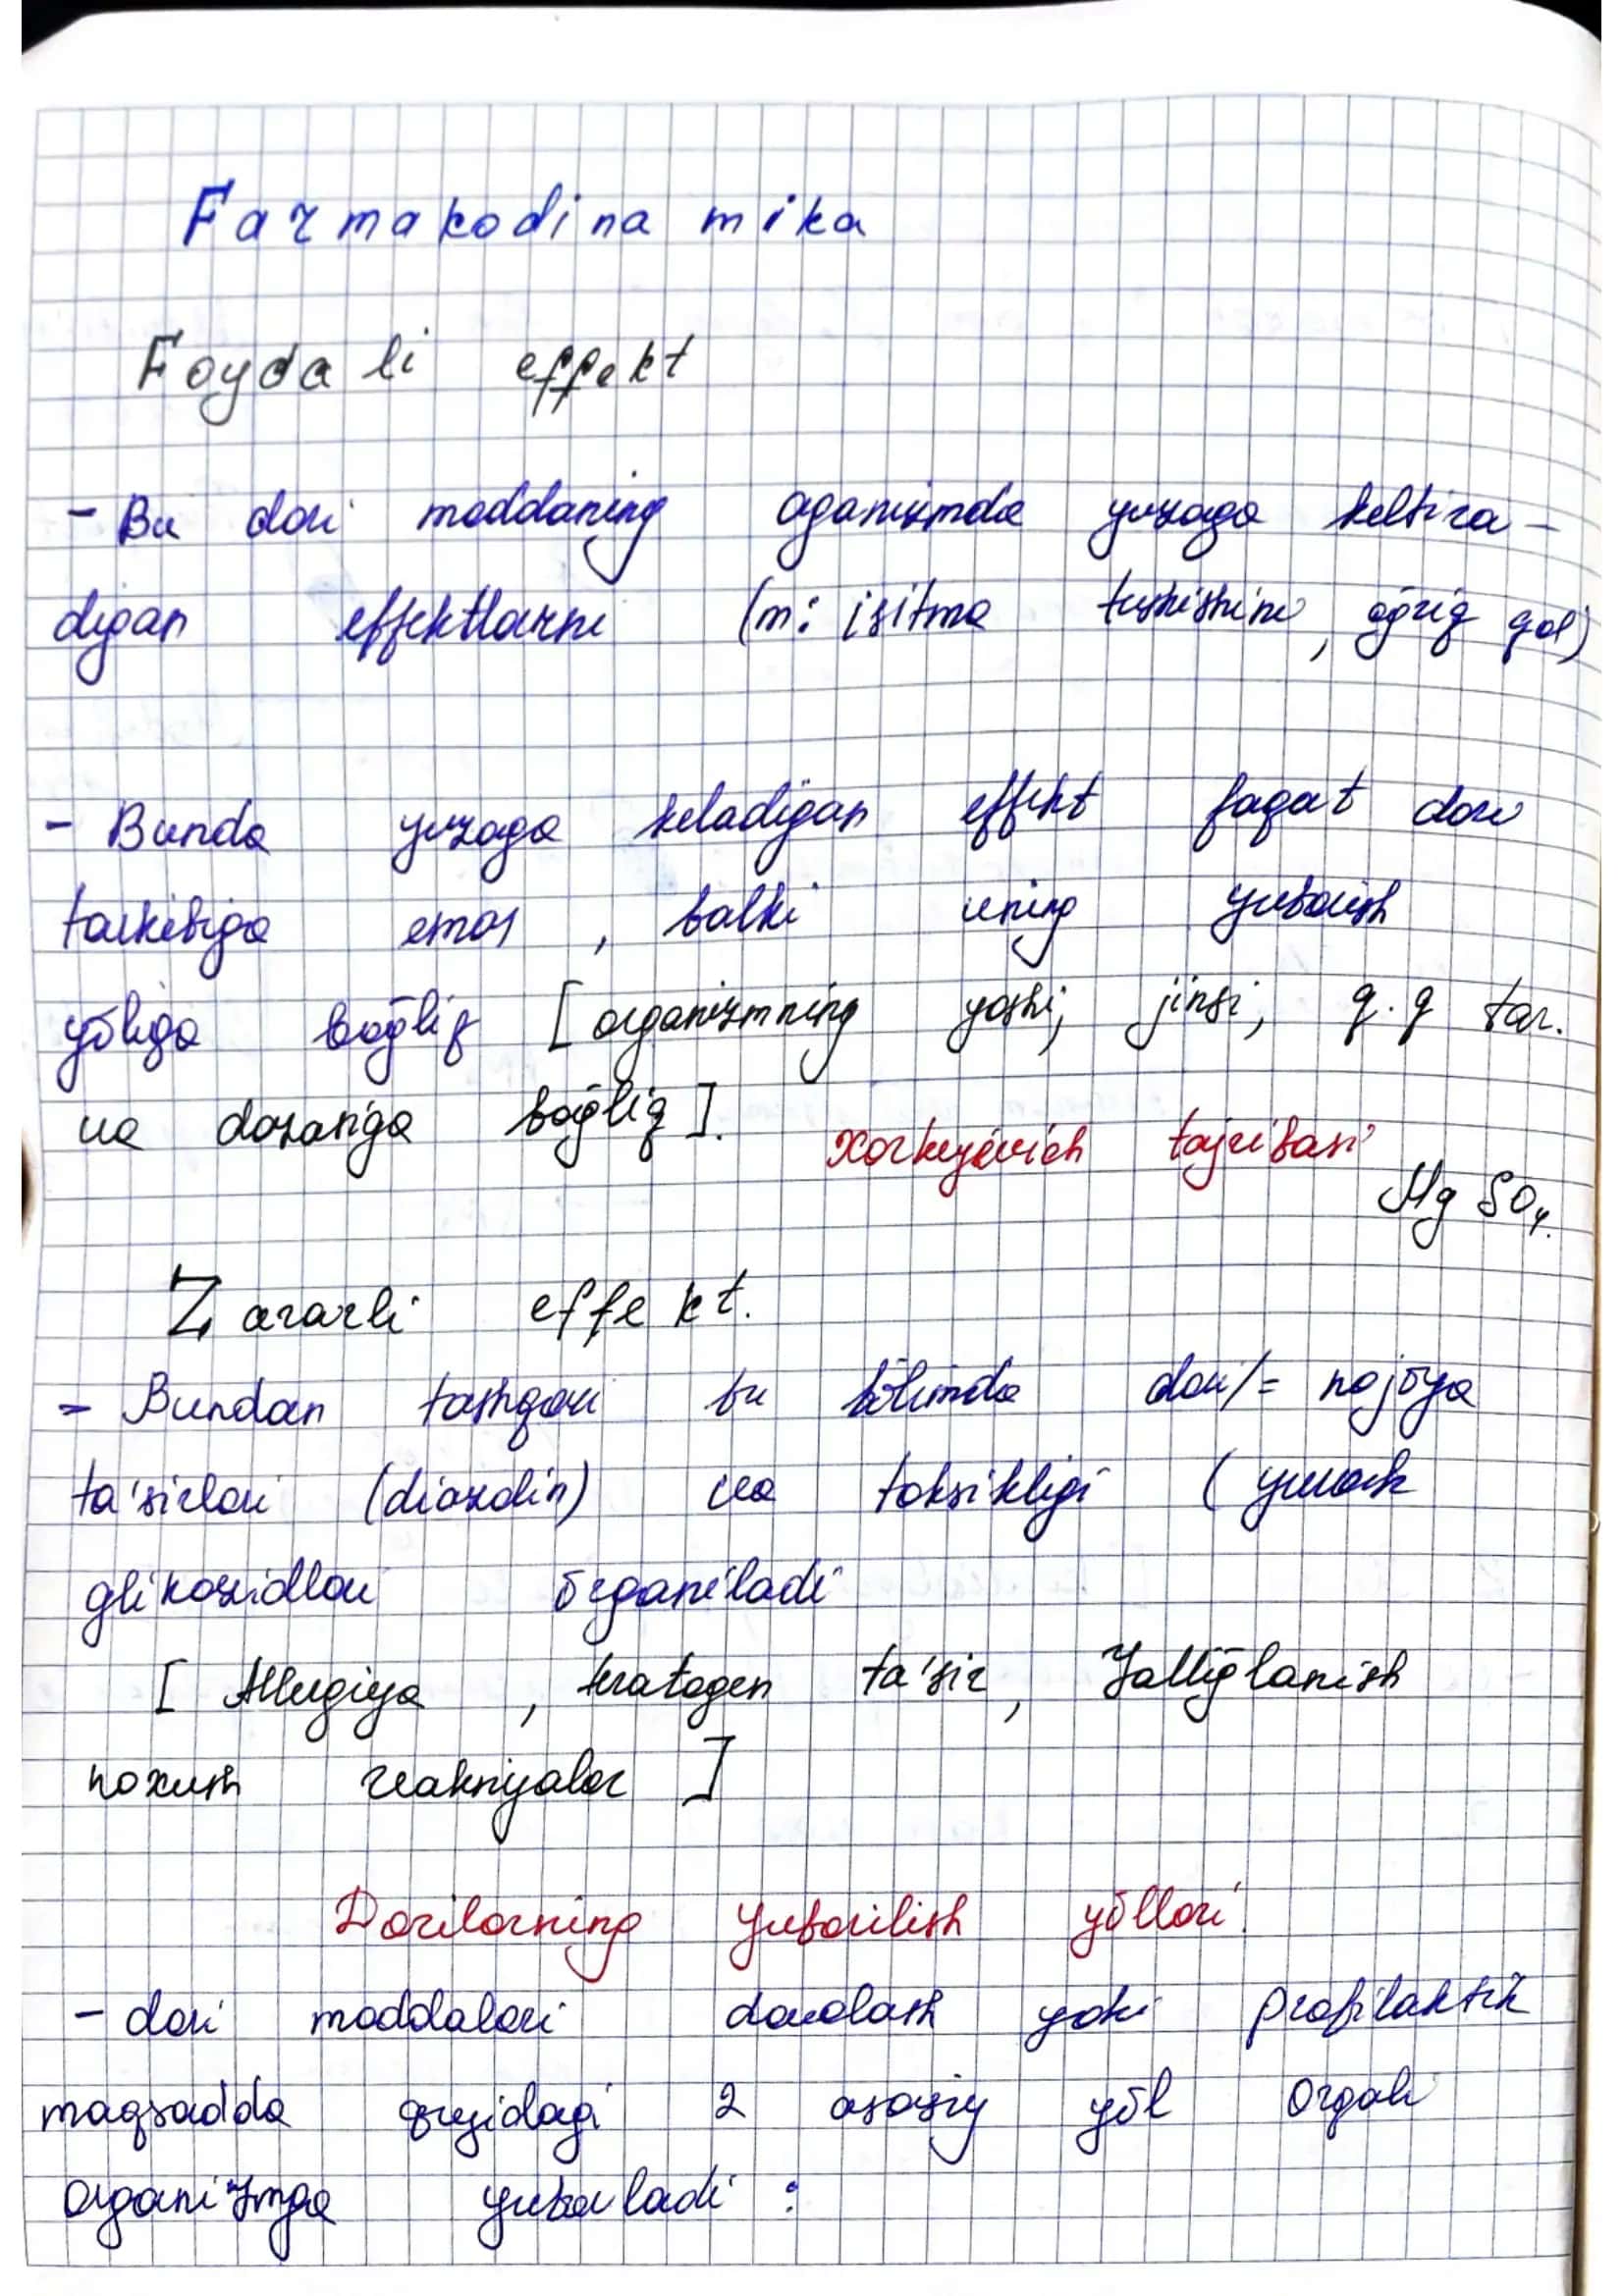 Farmakodinamika
Foydali effekt
- Bu dori moddaning oganizmda yuzaga keltira-
digan effektlarni (m: isitma tushishini, oğriq qol)
- Bunda yuzaga keladigan effekt faqat dori
tarkibiga emas, balki uning yuborish
yōliga boḡliq [organizmning yoshi, jinsi, q.q tar.
va dozasiga boḡliq].
tajribasi
MgSO₄.
Zararli effekt.
- Bundan tashqari bu bōlimda dori/= nojōya
ta'sirlari (diazolin) va toksikligi (yurak
glikozidlari ōrganiladi
[Allergiya, teratogen ta'sir, Yalliḡlanish
noxush reaksiyalar]
Dorilarning Yuborilish yōllari.
- dori moddalari davolash yoki profilaktik
maqsadda quyidagi 2 asosiy yōl orqali
organizmga yuboriladi: